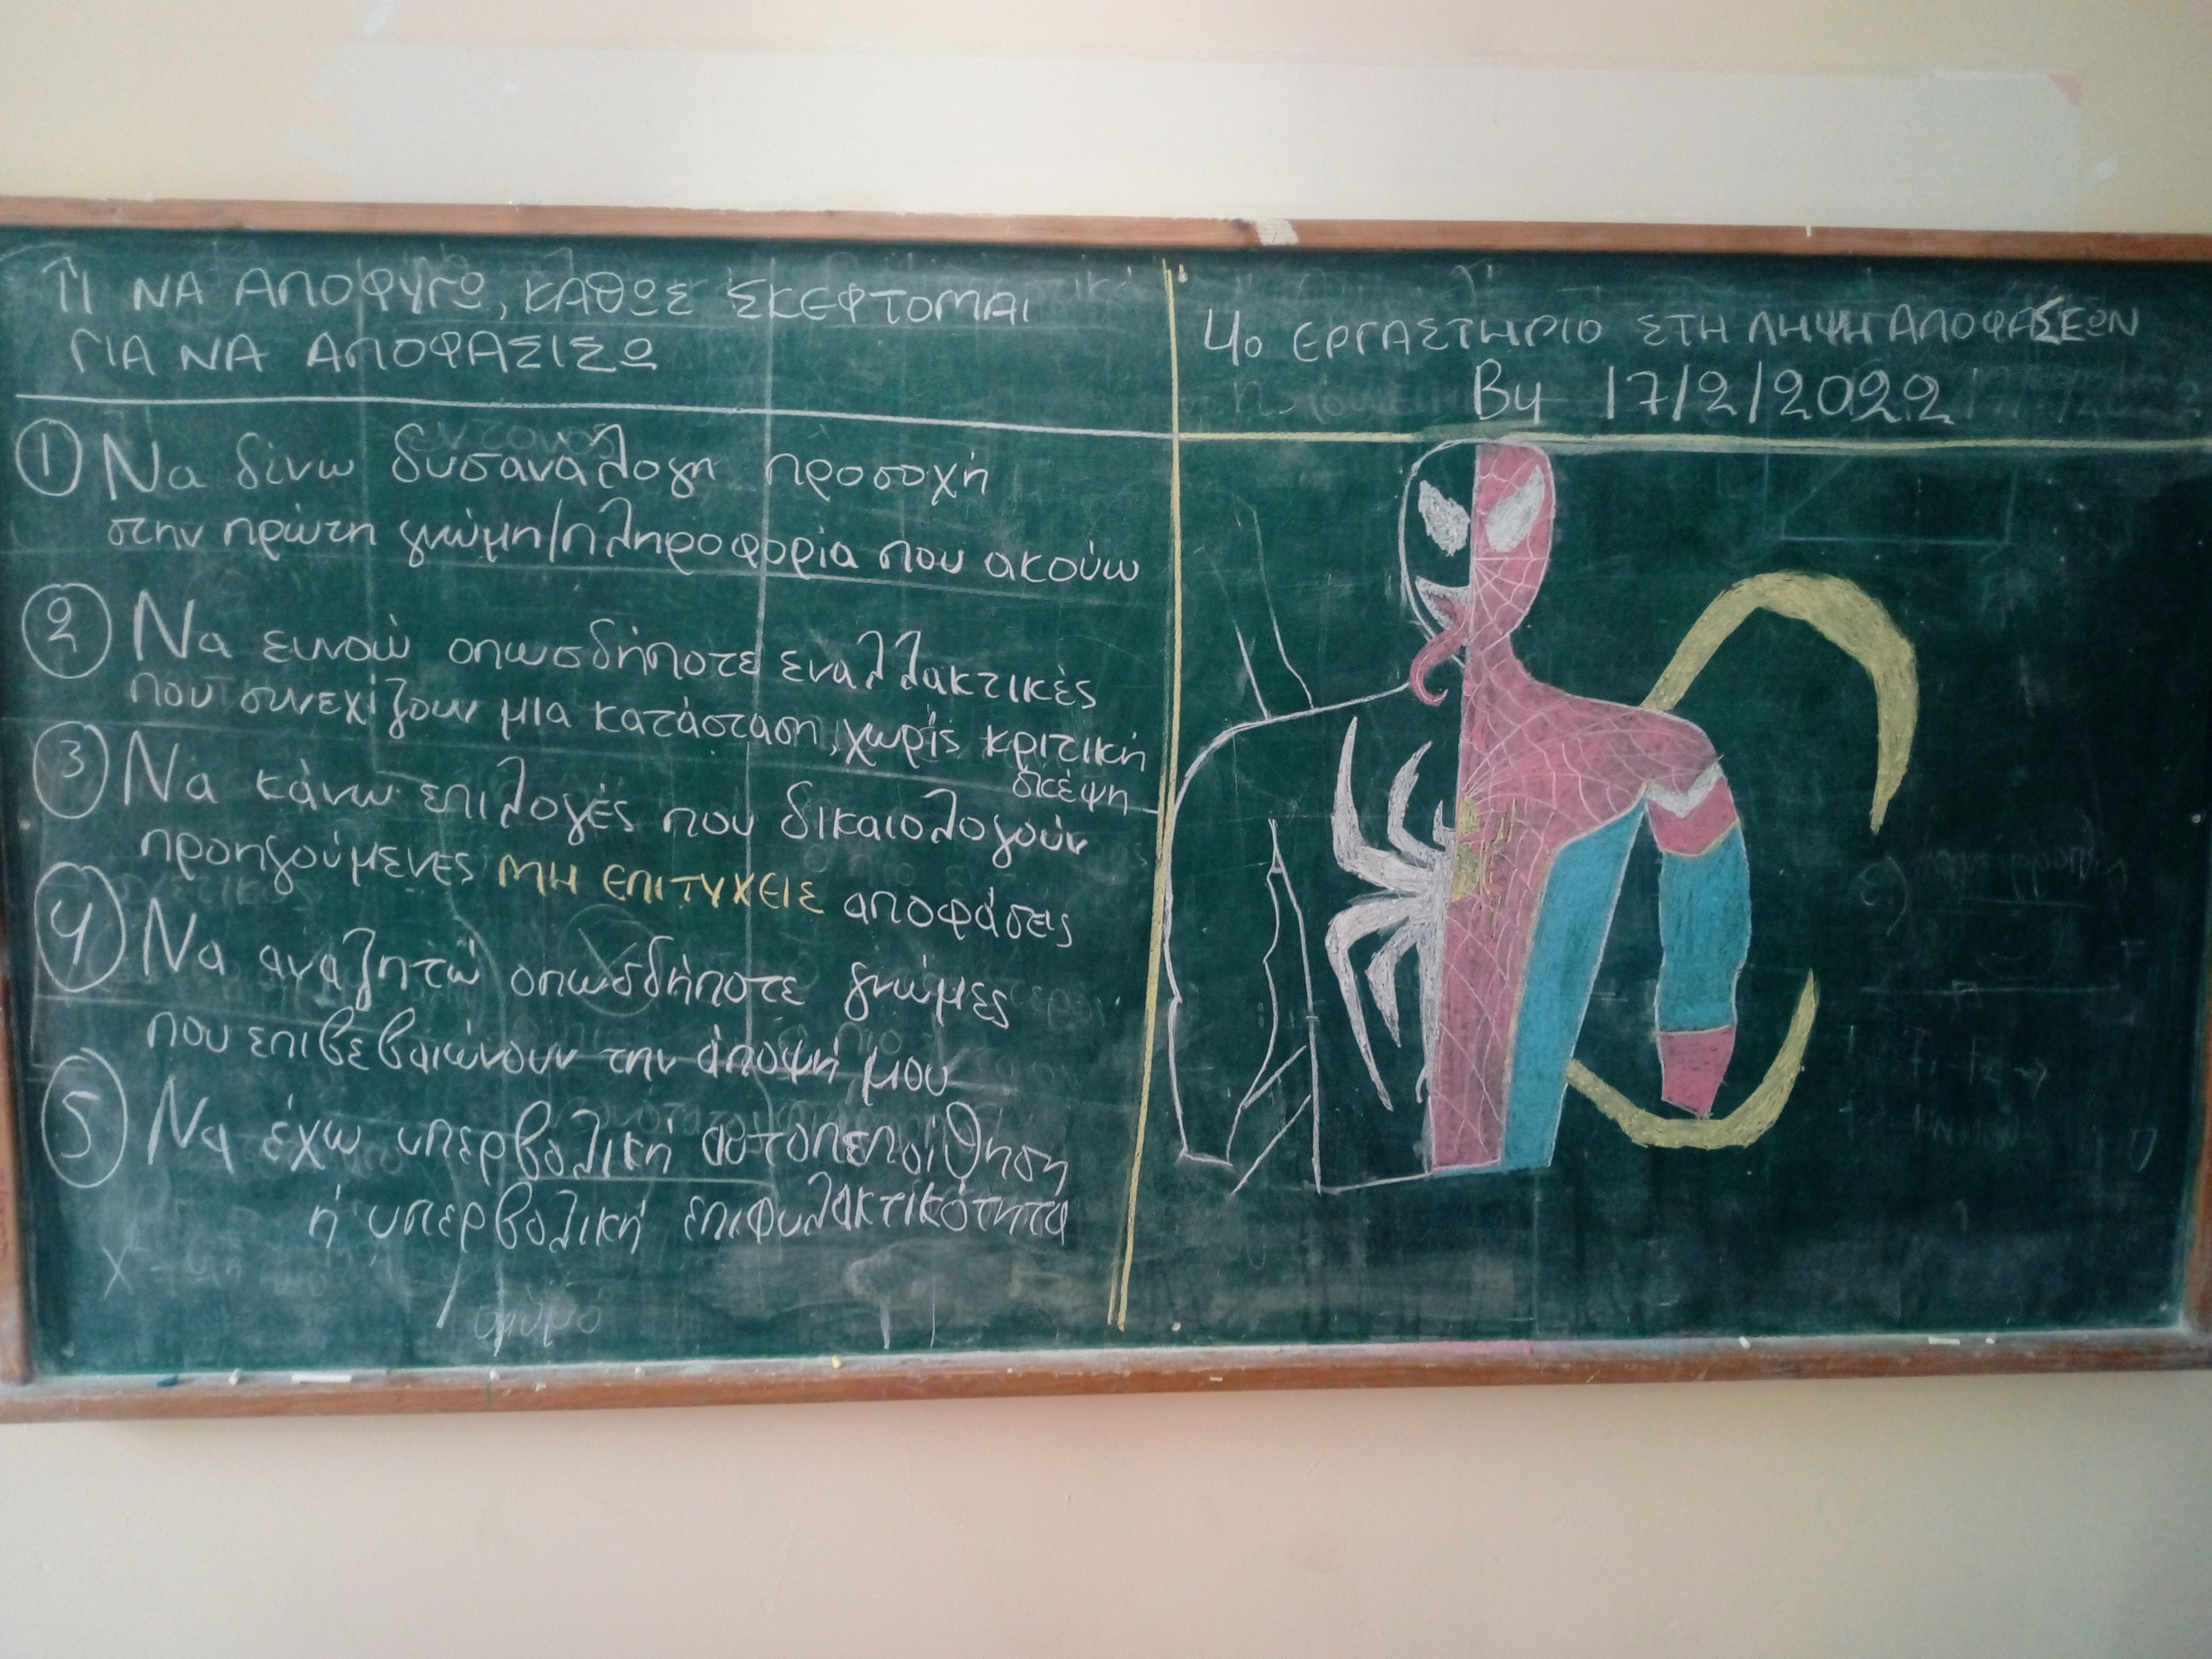 ΤΙ ΝΑ ΑΠΟΦΥΓΩ, ΚΑΘΩΣ ΣΚΕΦΤΟΜΑΙ
ΓΙΑ ΝΑ ΑΠΟΦΑΣΙΣΩ
1 Να δίνω δυσανάλογη προσοχή
στην πρώτη γνώμη/πληροφορία που ακούω
2 Να ευνοώ οπωσδήποτε εναλλακτικές
που συνεχίζουν μια κατάσταση, χωρίς κριτική
σκέψη
3 Να κάνω επιλογές που δικαιολογούν
προηγούμενες ΜΗ ΕΠΙΤΥΧΕΙΣ αποφάσεις
4 Να αναζητώ οπωσδήποτε γνώμες
που επιβεβαιώνουν την άποψή μου
5 Να έχω υπερβολική αυτοπεποίθηση
ή υπερβολική επιφυλακτικότητα
4ο ΕΡΓΑΣΤΗΡΙΟ ΣΤΗ ΛΗΨΗ ΑΠΟΦΑΣΕΩΝ
By 17/2/2022